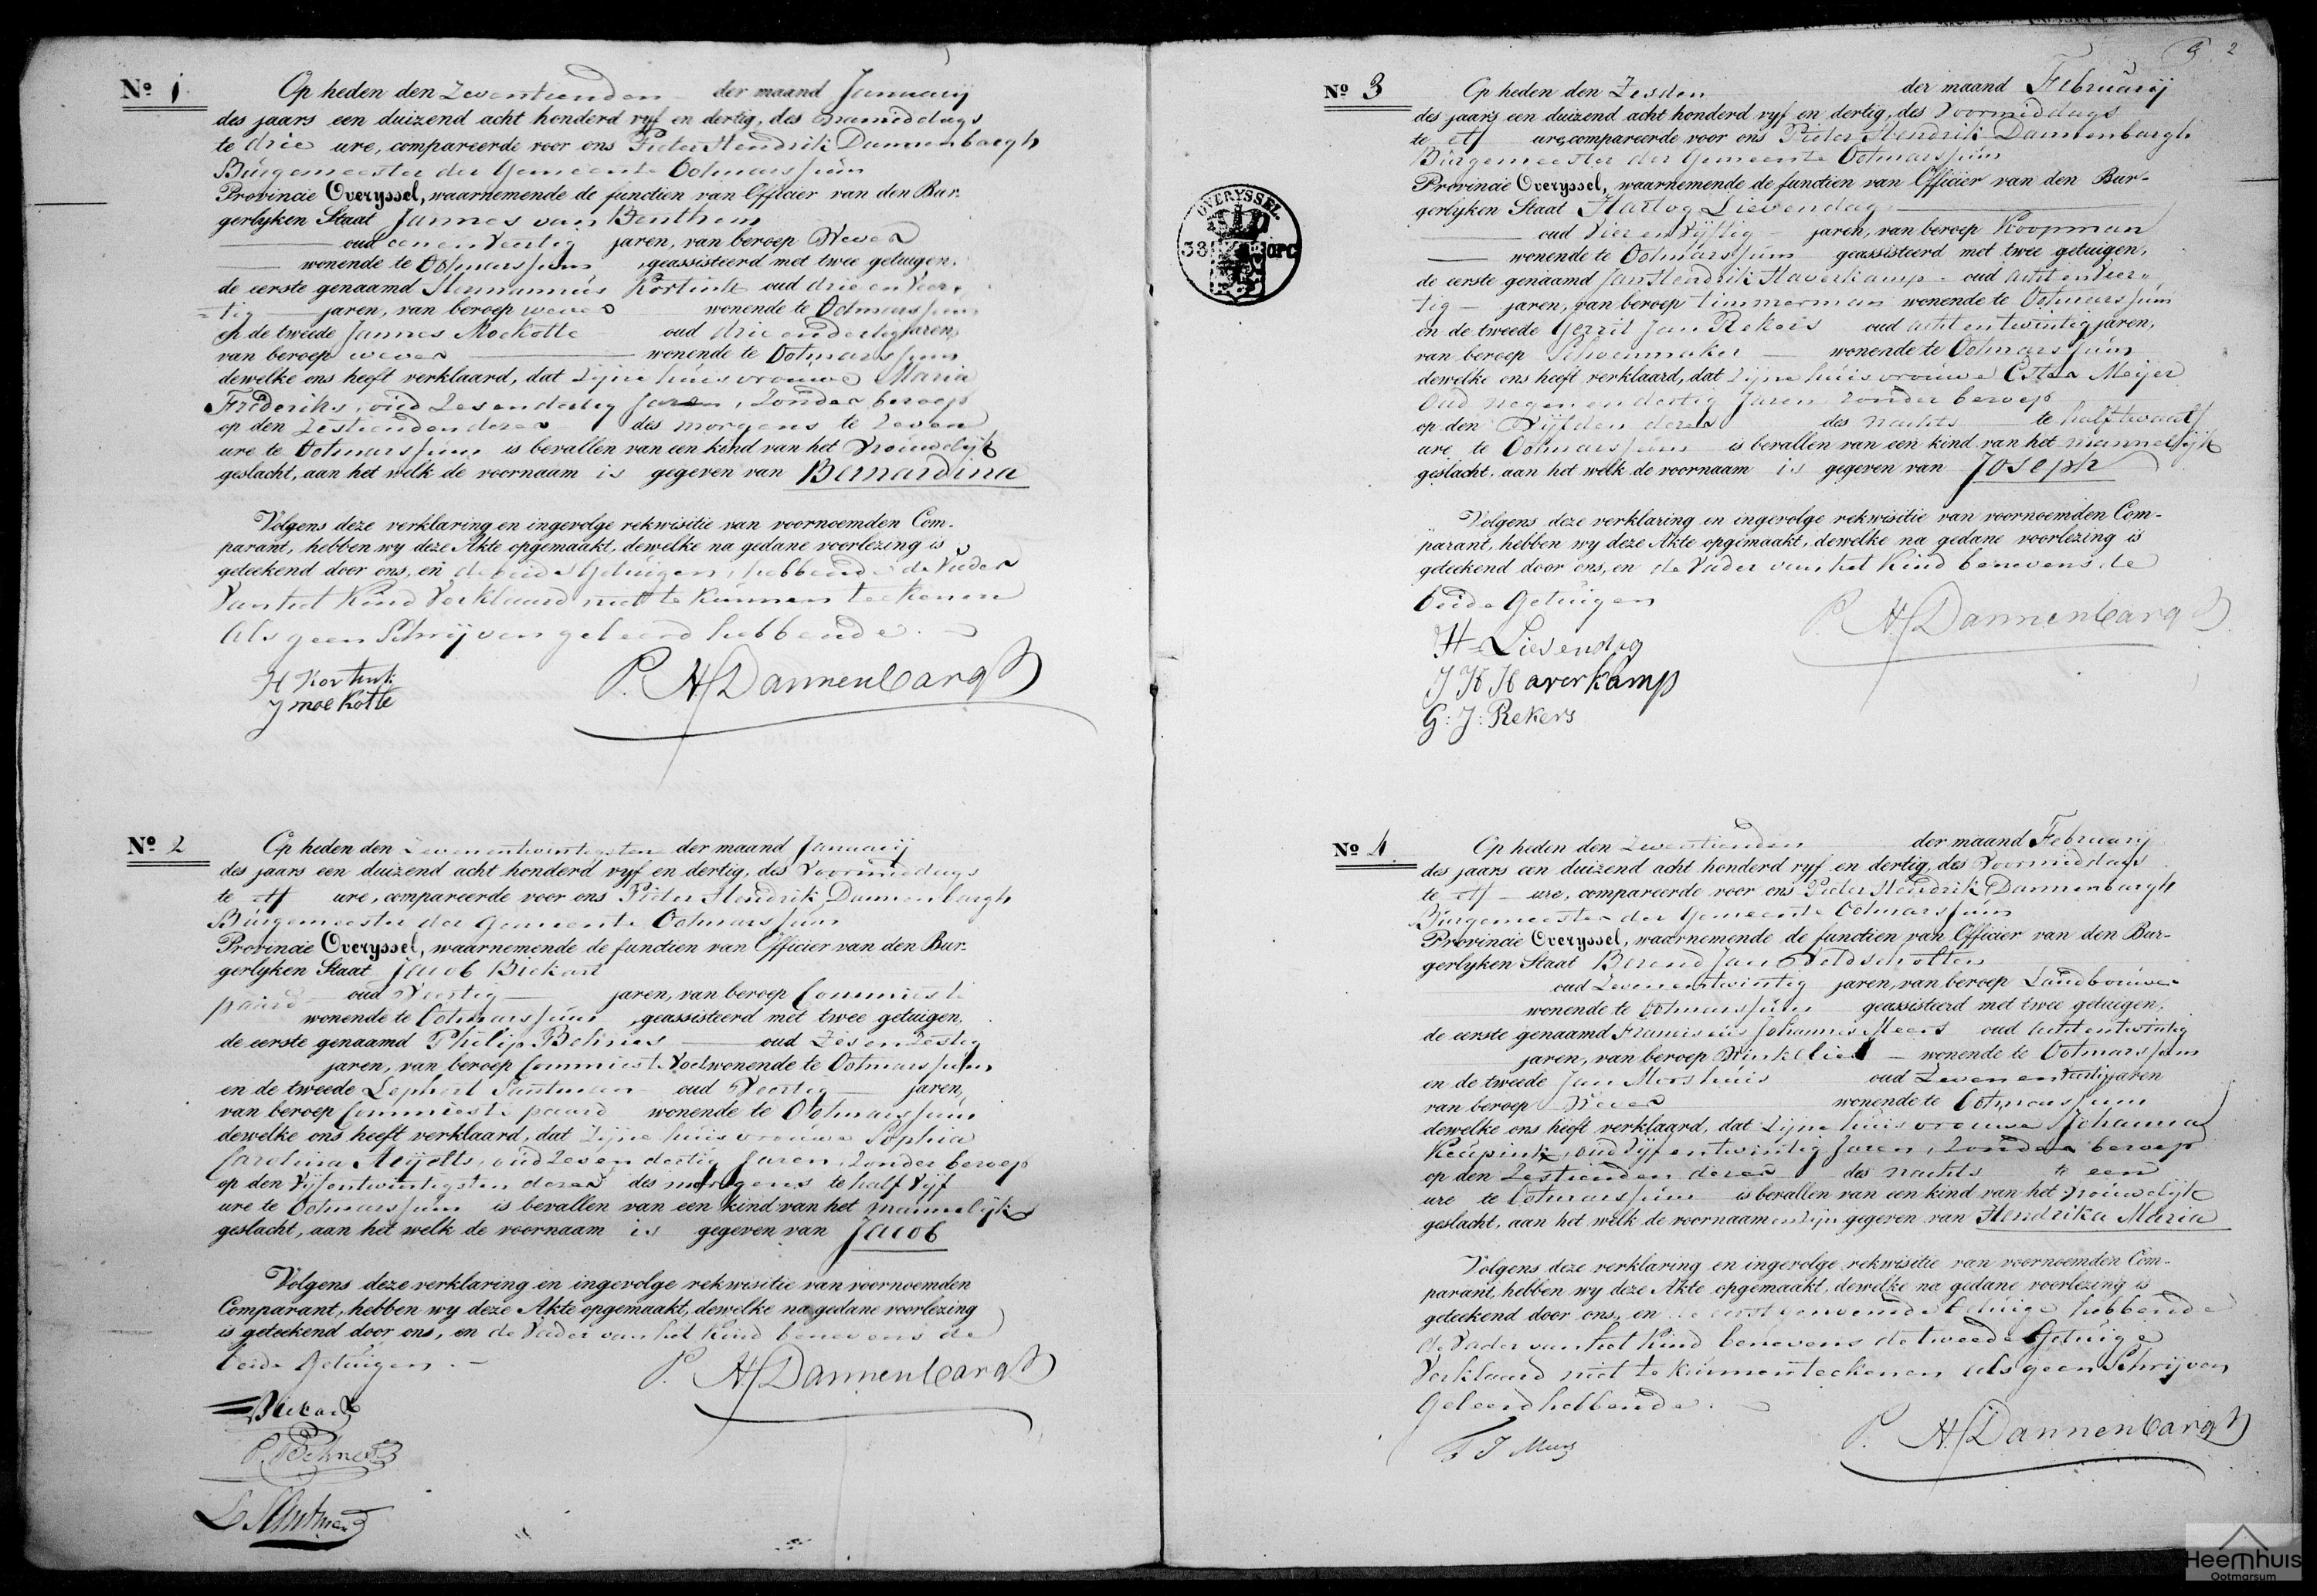 Nº 1
Op heden den Zeventienden der maand Januarij
des jaars een duizend acht honderd vyf en dertig, des namiddags
te drie ure, compareerde voor ons Pieter Hendrik Dannenbargh
Burgemeester der Gemeente Ootmarssum
Provincie Overyssel, waarnemende de functien van Officier van den Bur-
gerlyken Staat Jannes van Benthem
oud eenenveertig jaren, van beroep Wever
wonende te Ootmarssum, geassisteerd met twee getuigen,
de eerste genaamd Hermannus Kortink oud drie en veer-
tig jaren, van beroep wever wonende te Ootmarssum
en de tweede Jannes Moekotte oud drie endertig jaren,
van beroep wever wonende te Ootmarssum
dewelke ons heeft verklaard, dat Zijne huisvrouwe Maria
Frederiks, oud Zesendertig Jaren, Zonder beroep
op den Zestienden dezer des morgens te Zeven
ure te Ootmarssum is bevallen van een kind van het Vrouwelijk
geslacht, aan het welk de voornaam is gegeven van Bernardina
Volgens deze verklaring en ingevolge rekwisitie van voornoemden Com-
parant, hebben wy deze Akte opgemaakt, dewelke na gedane voorlezing is
geteekend door ons, en de beide Getuigen, hebbende de Vader
van het Kind Verklaard niet te kunnen teekenen
Als geen Schrijven geleerd hebbende.
H Kortink
J moekotte
P. H. Dannenbargh
Nº 2
Op heden den Zevenentwintigsten der maand Januarij
des jaars een duizend acht honderd vyf en dertig, des Voormiddags
te elf ure, compareerde voor ons Pieter Hendrik Dannenbargh
Burgemeester der Gemeente Ootmarssum
Provincie Overyssel, waarnemende de functien van Officier van den Bur-
gerlyken Staat Jacob Biekart
oud Veertig jaren, van beroep Commies te
paard wonende te Ootmarssum, geassisteerd met twee getuigen,
de eerste genaamd Philip Behnes oud
jaren, van beroep Commies te Voet wonende te Ootmarssum
en de tweede oud Veertig jaren,
van beroep Commies te paard wonende te Ootmarssum
dewelke ons heeft verklaard, dat Zijne huisvrouwe Sophia
Carolina oud Zeven dertig Jaren, Zonder beroep
op den Vijfentwintigsten dezer des morgens te half Vijf
ure te Ootmarssum is bevallen van een kind van het mannelijk
geslacht, aan het welk de voornaam is gegeven van Jacob
Volgens deze verklaring en ingevolge rekwisitie van voornoemden
Comparant, hebben wy deze Akte opgemaakt, dewelke na gedane voorlezing
is geteekend door ons, en de Vader van het Kind benevens de
beide Getuigen.
Biekart
P. Behnes
P. H. Dannenbargh
2
OVERYSSEL
38 OPC
Nº 3
Op heden den Zesden der maand Februarij
des jaars een duizend acht honderd vyf en dertig, des Voormiddags
te elf ure, compareerde voor ons Pieter Hendrik Dannenbargh
Burgemeester der Gemeente Ootmarssum
Provincie Overyssel, waarnemende de functien van Officier van den Bur-
gerlyken Staat Hartog Lievendag
oud Vier en Vijftig jaren, van beroep Koopman
wonende te Ootmarssum geassisteerd met twee getuigen,
de eerste genaamd Jan Hendrik Haverkamp oud acht en veer-
tig jaren, van beroep timmerman wonende te Ootmarssum
en de tweede Gerrit Jan Rekers oud acht en twintig jaren,
van beroep Schoenmaker wonende te Ootmarssum
dewelke ons heeft verklaard, dat Zijne huisvrouwe Ester Meijer
Oud negen en dertig Jaren zonder beroep
op den Vijfden dezer des nachts te half twaalf
ure te Ootmarssum is bevallen van een kind van het mannelijk
geslacht, aan het welk de voornaam is gegeven van Joseph
Volgens deze verklaring en ingevolge rekwisitie van voornoemden Com-
parant, hebben wy deze Akte opgemaakt, dewelke na gedane voorlezing is
geteekend door ons, en de Vader van het Kind benevens de
beide Getuigen
H Lievendag
J H Haverkamp
G: J: Rekers
P. H. Dannenbargh
Nº 4
Op heden den Zeventienden der maand Februarij
des jaars een duizend acht honderd vyf en dertig, des Voormiddags
te elf ure, compareerde voor ons Pieter Hendrik Dannenbargh
Burgemeester der Gemeente Ootmarssum
Provincie Overyssel, waarnemende de functien van Officier van den Bur-
gerlyken Staat Berend Jan Veldscholten
oud Zevenentwintig jaren, van beroep Landbouwer
wonende te Ootmarssum geassisteerd met twee getuigen,
de eerste genaamd Franciscus Johannes Meers oud acht entwintig
jaren, van beroep Winkelier wonende te Ootmarssum
en de tweede Jan Morshuis oud Zeven en veertig jaren
van beroep Wever wonende te Ootmarssum
dewelke ons heeft verklaard, dat Zijne huisvrouwe Johanna
Keupink, oud Vijfentwintig Jaren, Zonder beroep
op den Zestienden dezer des nachts te een
ure te Ootmarssum is bevallen van een kind van het Vrouwelijk
geslacht, aan het welk de voornaamen zijn gegeven van Hendrika Maria
Volgens deze verklaring en ingevolge rekwisitie van voornoemden Com-
parant, hebben wy deze Akte opgemaakt, dewelke na gedane voorlezing is
geteekend door ons, en de eerstgenoemde Getuige hebbende
de Vader van het Kind benevens de tweede Getuige
Verklaard niet te kunnen teekenen als geen Schrijven
Geleerd hebbende.
F J Meers
P. H. Dannenbargh
Heemhuis
Ootmarsum